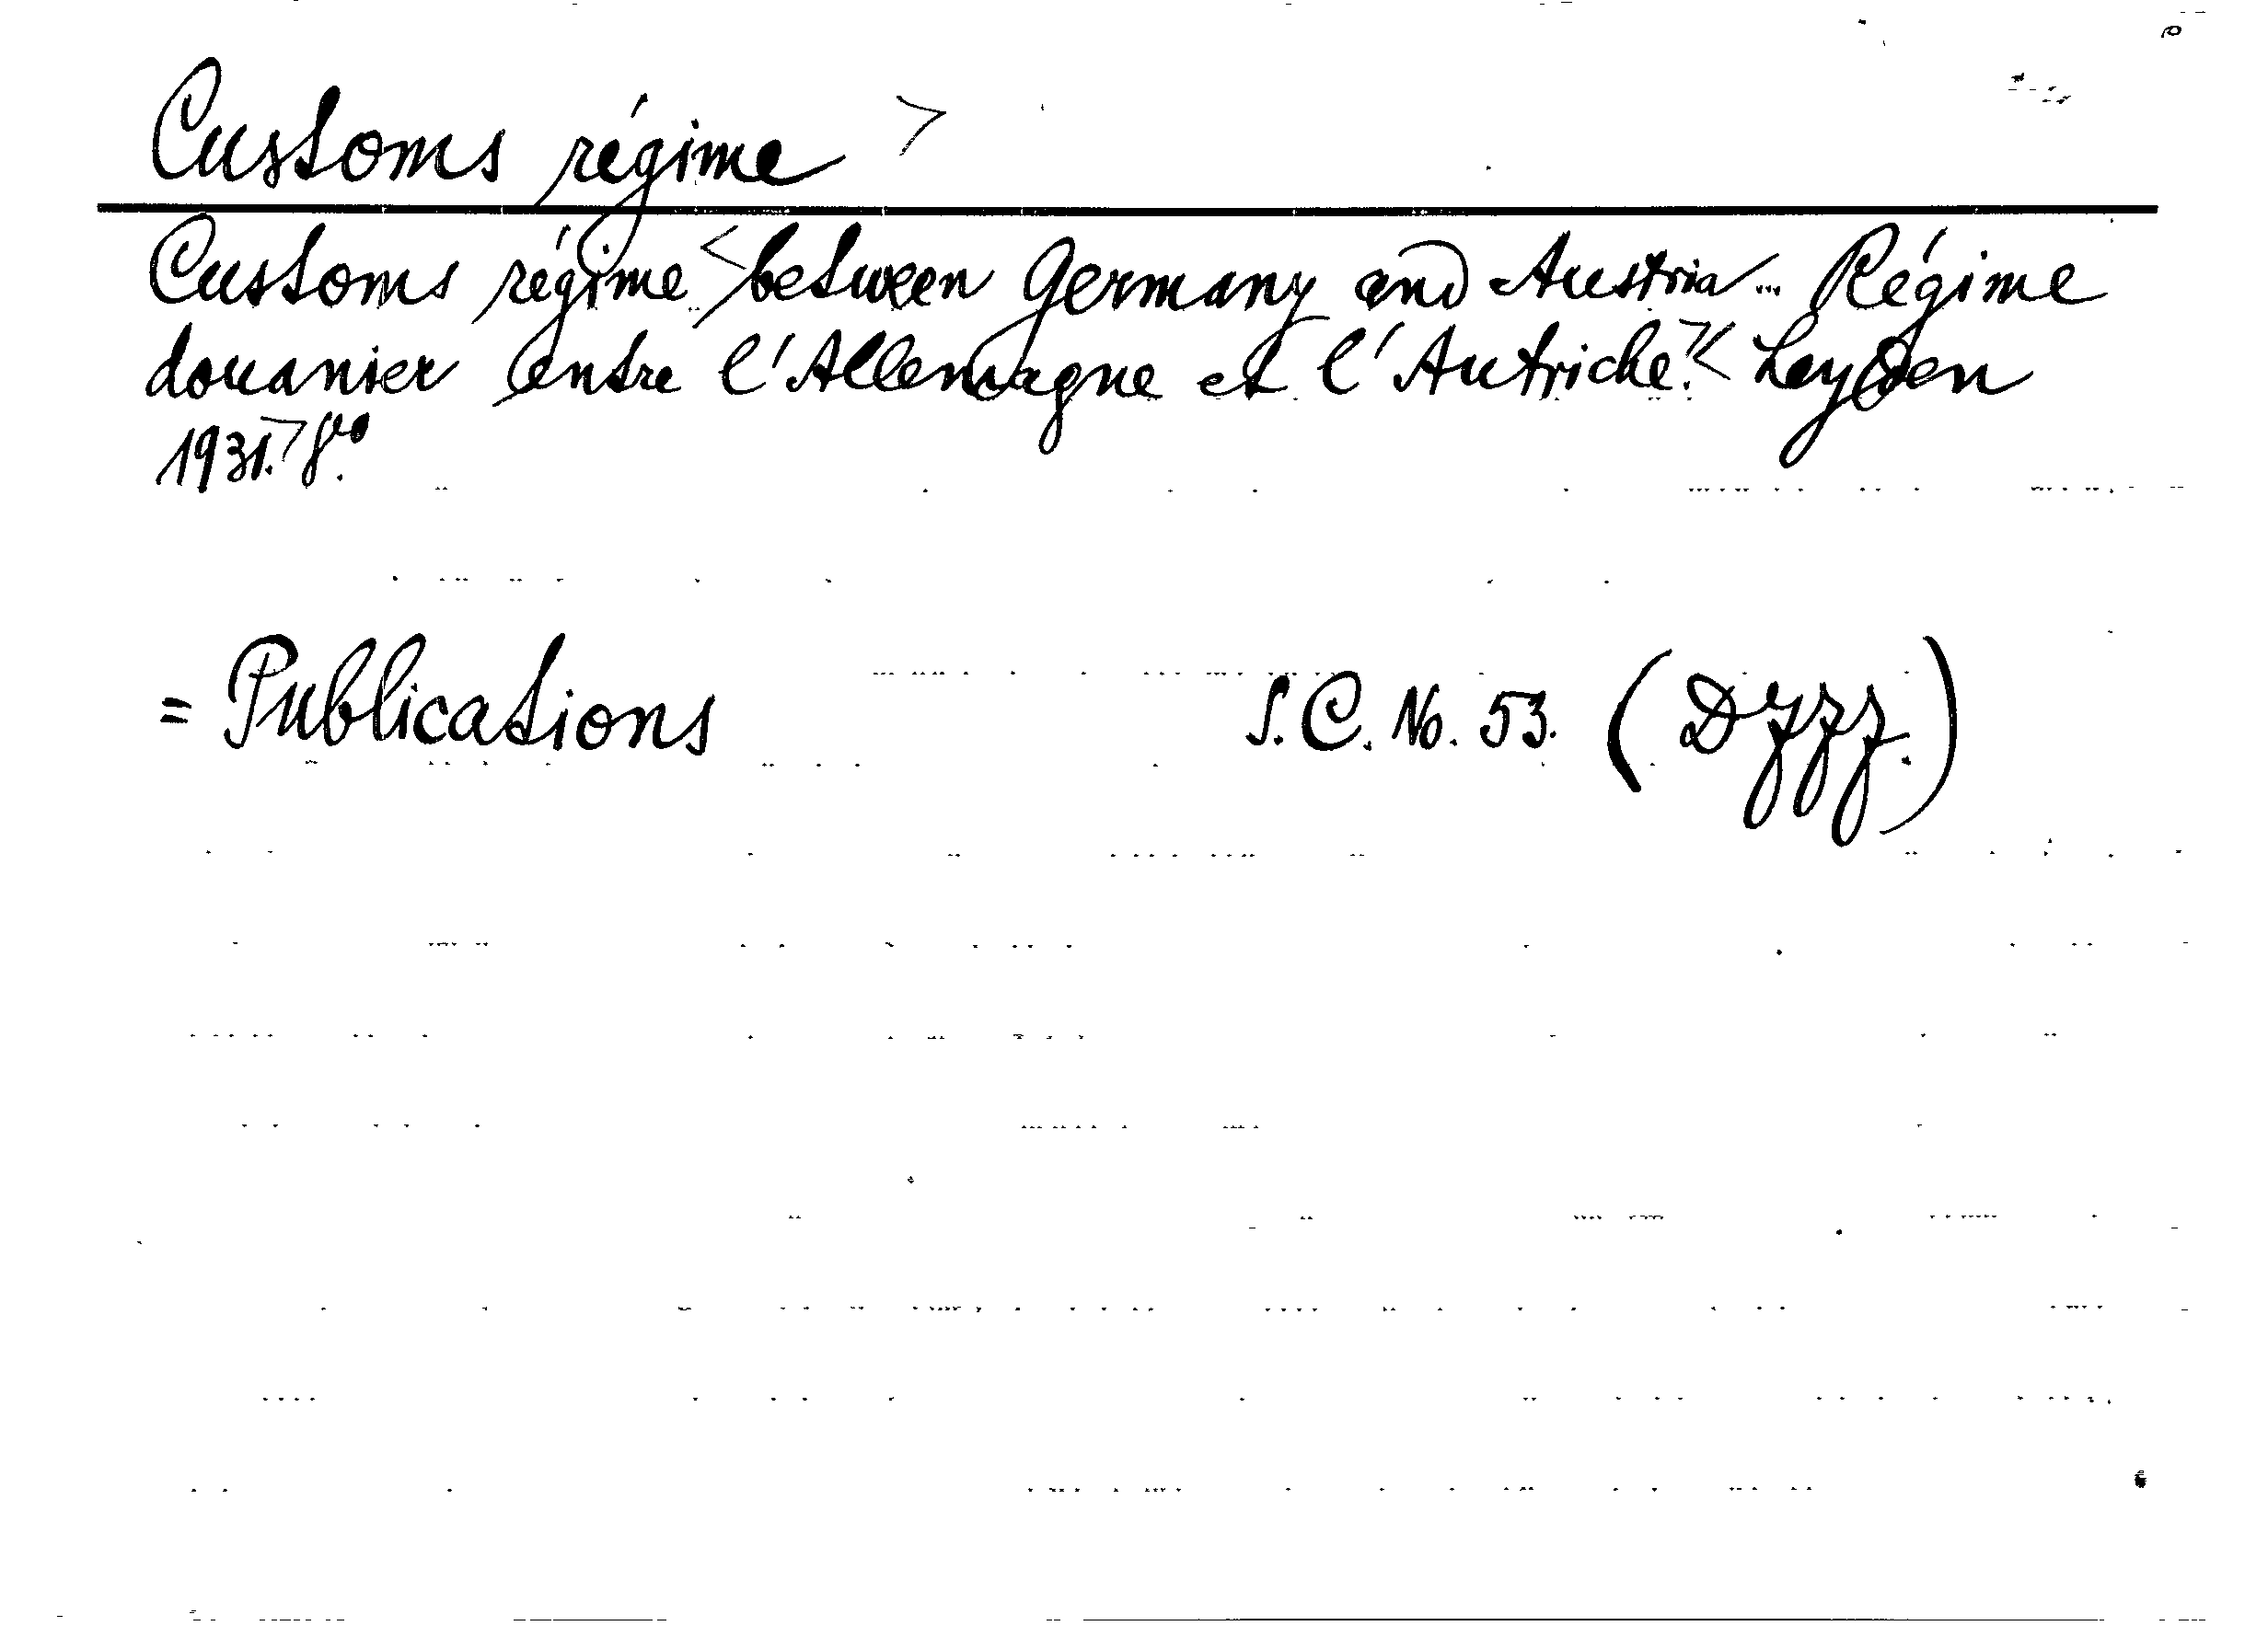 Customs régime >
Customs régime < between Germany and Austria... Régime
douanier entre l'Allemagne et l'Autriche. > < Leyden
1931. > 8vo.
= Publications S.C. No. 53. (Dzzz.)